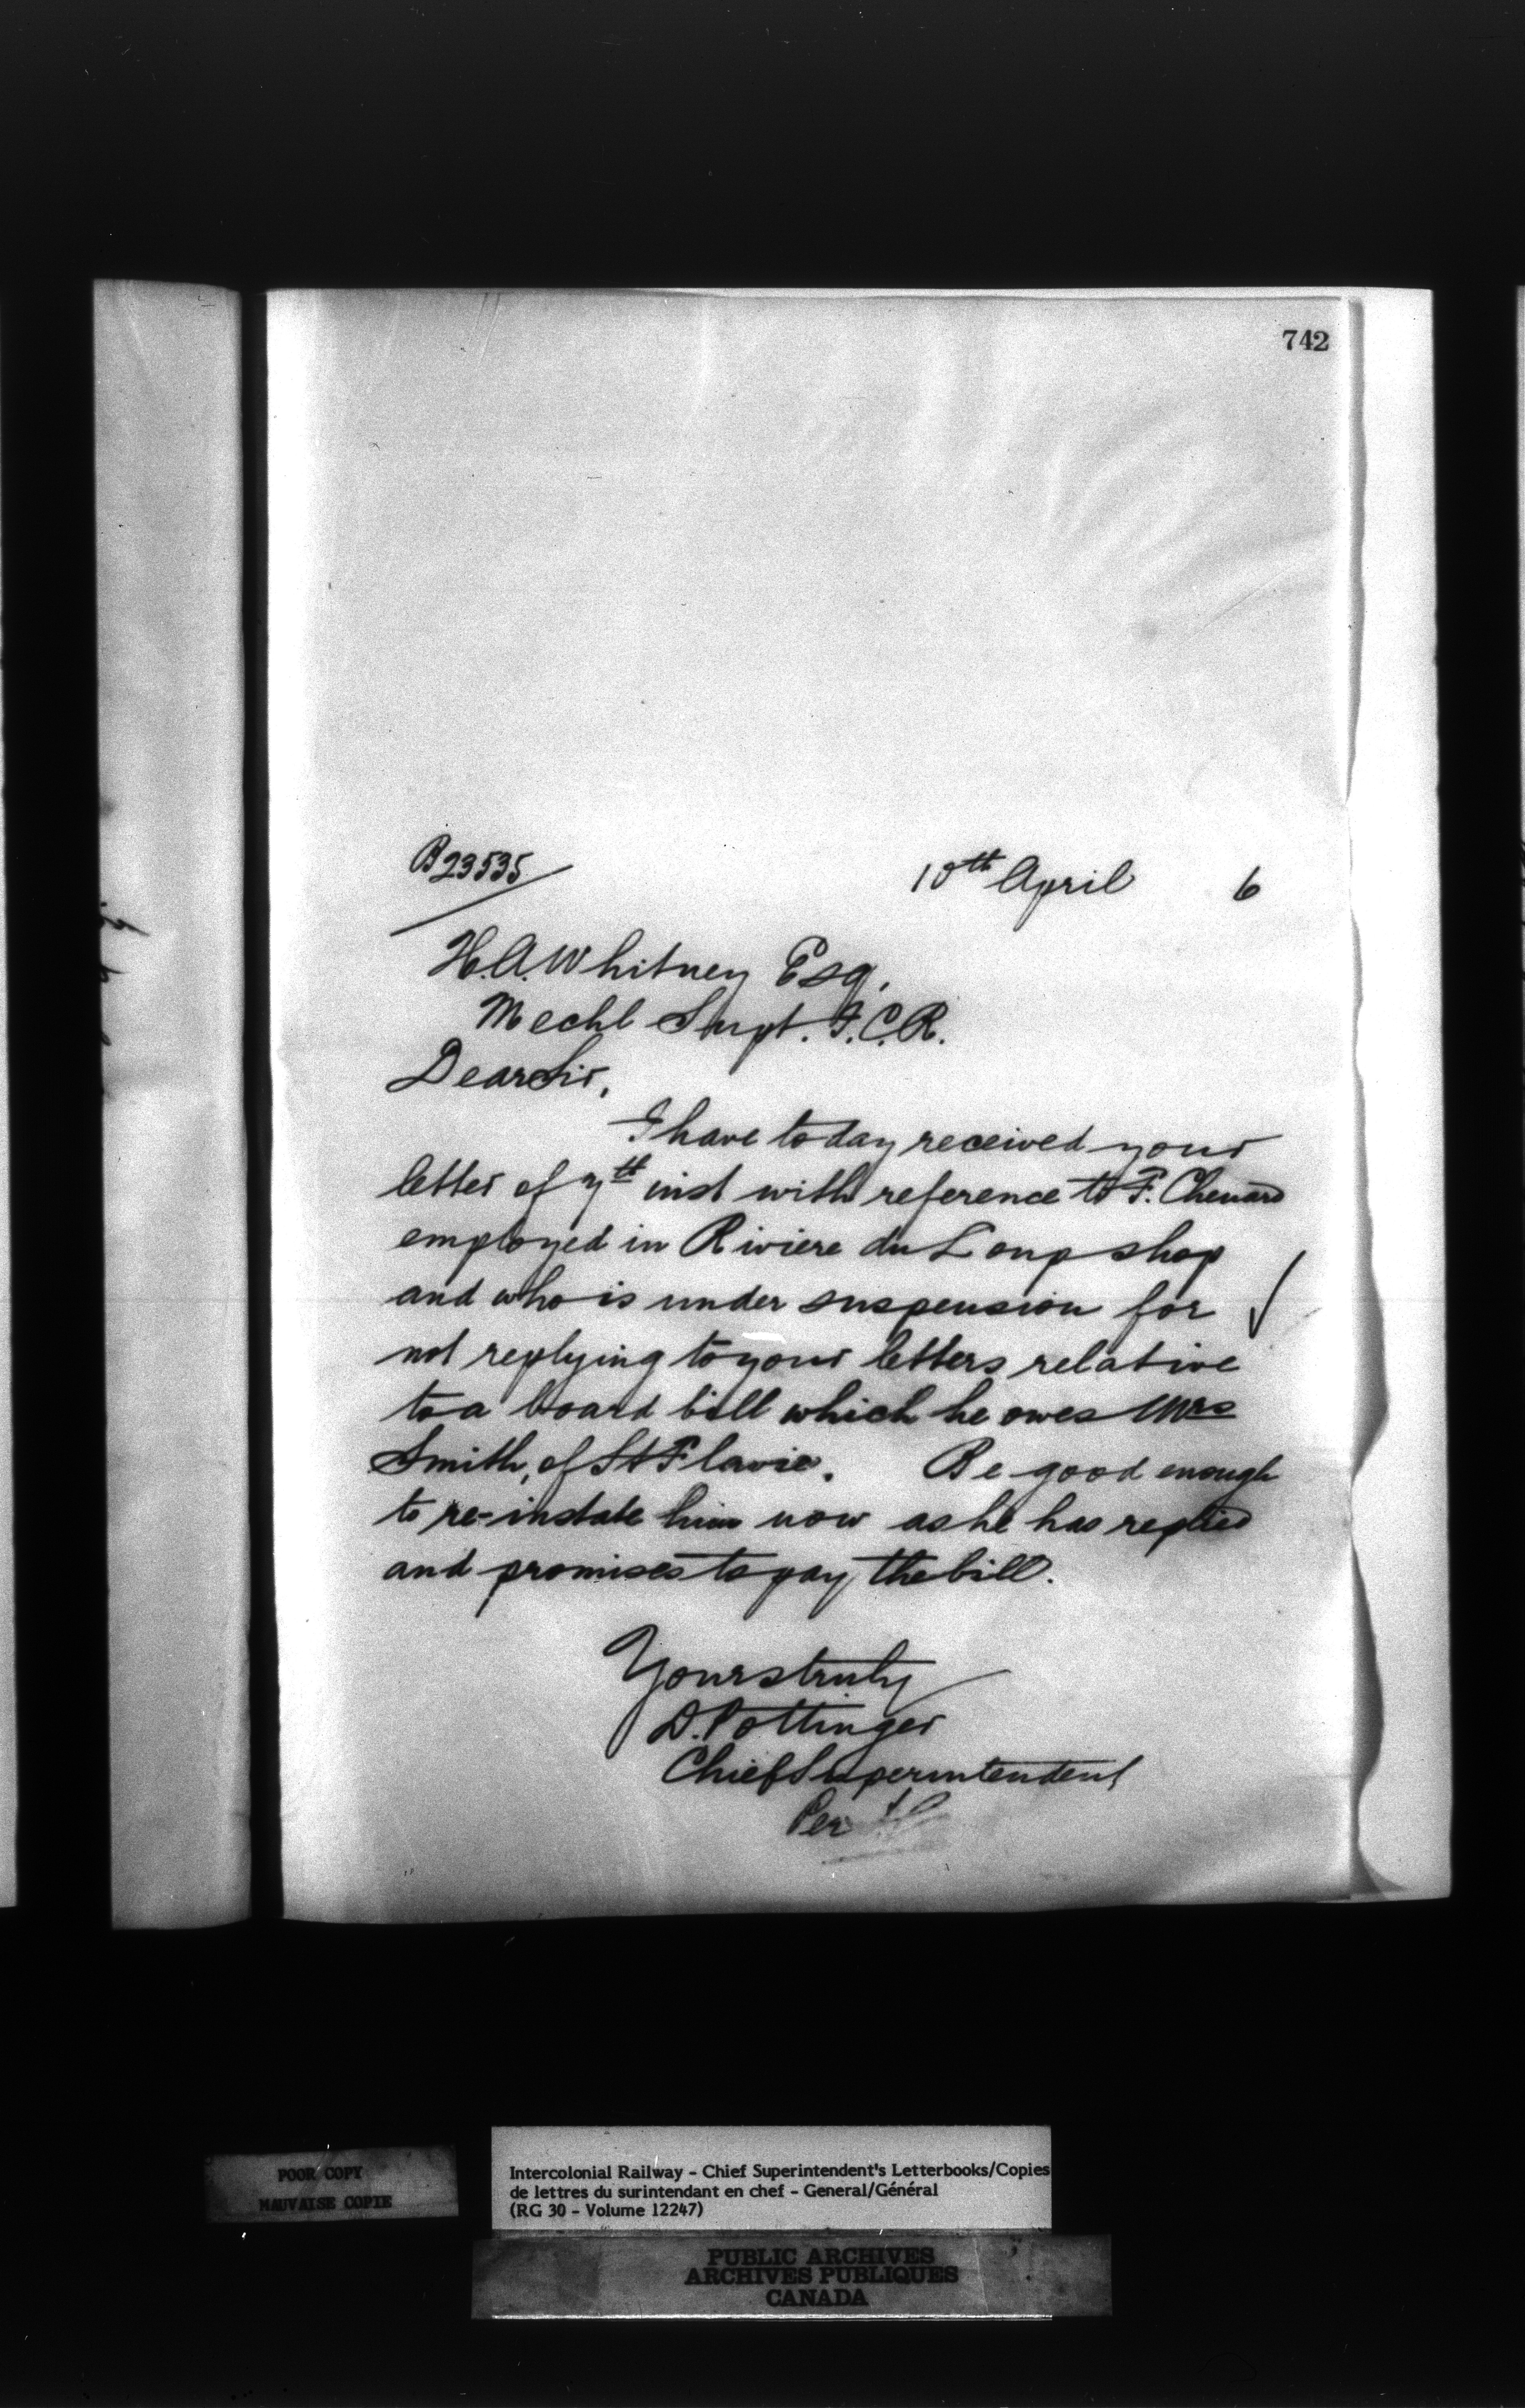 742
B23535
10th April 6
H.A. Whitney Esq.
Mechl Supt. I.C.R.
Dear Sir,
I have today received your
letter of 7th inst with reference to F. Chenard
employed in Riviere du Loup shop
and who is under suspension for
not replying to your letters relative
to a board bill which he owes Mrs
Smith, of St Flavie. Be good enough
to re-instate him now as he has replied
and promises to pay the bill.
Yours truly
D. Pottinger
Chief Superintendent
Per
POOR COPY
MAUVAISE COPIE
Intercolonial Railway - Chief Superintendent's Letterbooks/Copies
de lettres du surintendant en chef - General/Général
(RG 30 - Volume 12247)
PUBLIC ARCHIVES
ARCHIVES PUBLIQUES
CANADA